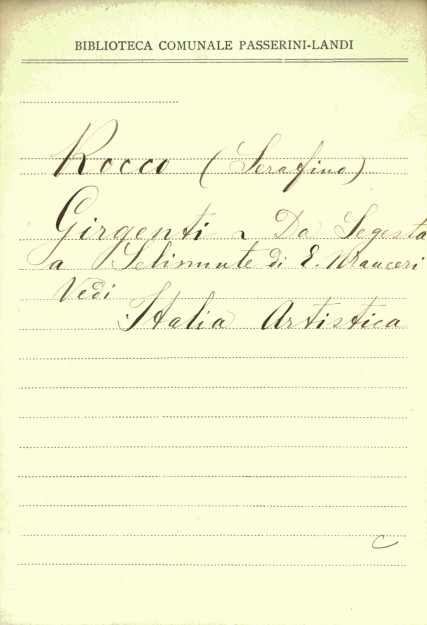 BIBLIOTECA COMUNALE PASSERINI-LANDI
Rocco (Serafino)
Girgenti ~ Da Segesta
a Selinunte di E. Mauceri
Vedi
Italia Artistica
C